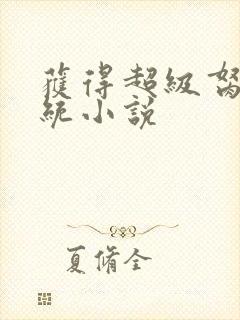 獲得超級
統小說
夏脩全